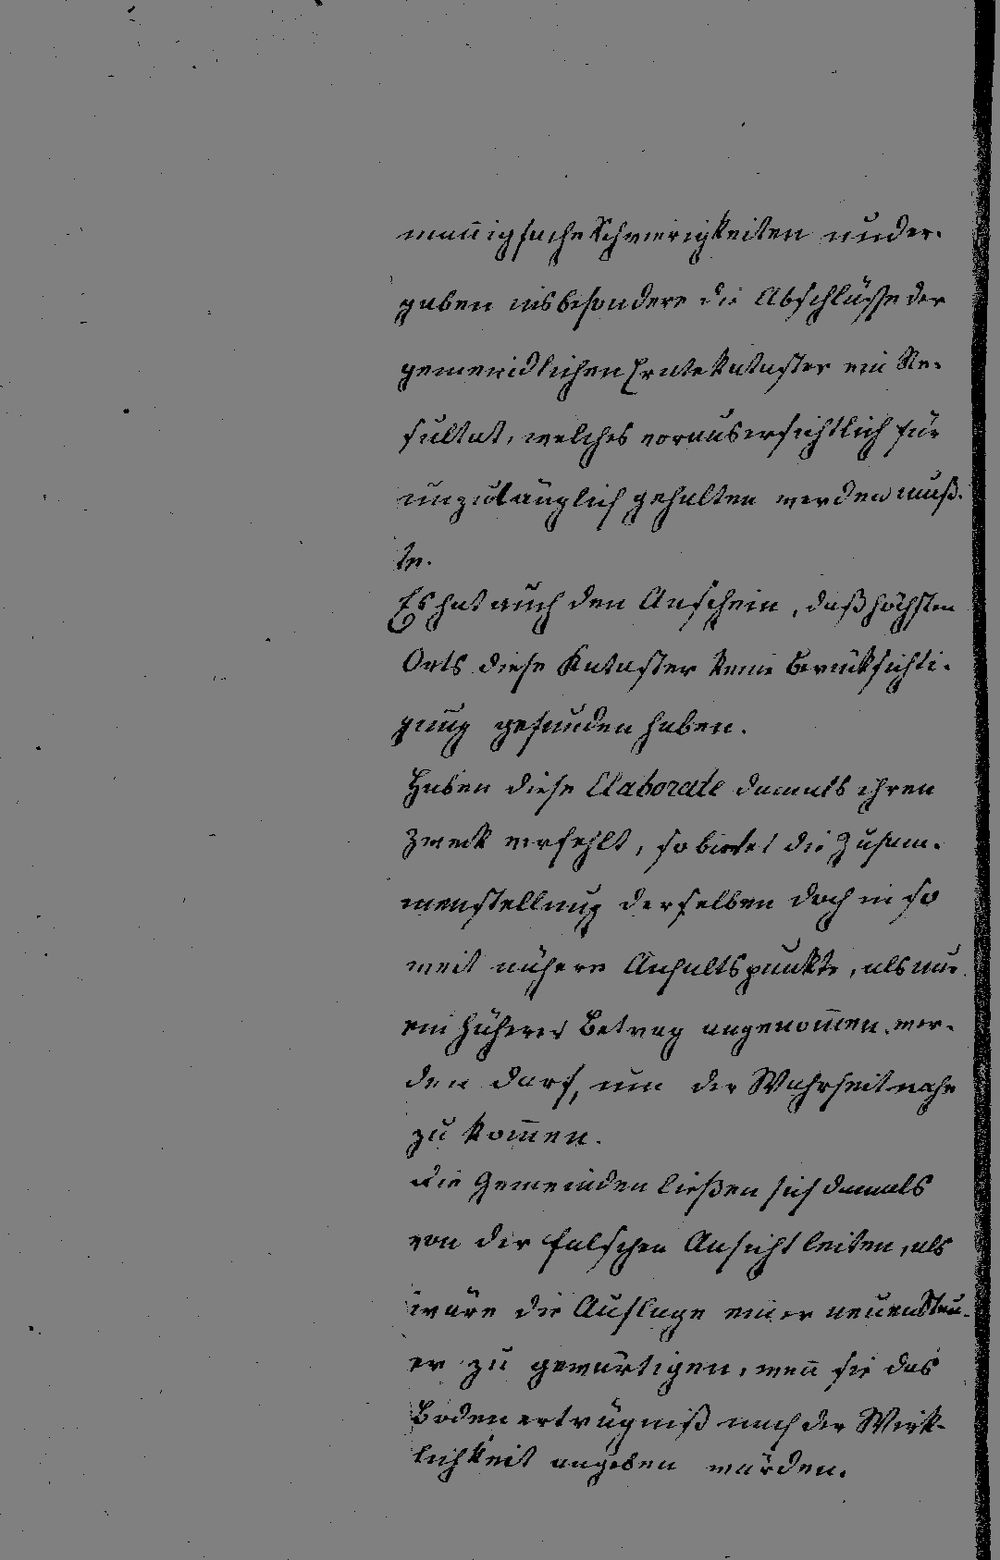 mannigfache Schwierigkeiten und er-
gaben insbesondere die Abschlüsse der
gemeindlichen Erntekataster ein Re-
sultat, welches voraussichtlich für
unzulänglich gehalten werden muß-
te.
Es hat auch den Anschein, daß höchsten
Orts diese Kataster keine Berücksichti-
gung gefunden haben.
Haben diese Elaborate damals ihren
Zweck verfehlt, so bietet die Zusam-
menstellung derselben doch in so
weit nähere Anhaltspunkte, als nur
ein höherer Betrag angenommen wer-
den darf, um der Wahrheit nahe
zu kommen.
Die Gemeinden ließen sich damals
von der falschen Ansicht leiten, als
wäre die Auflage einer neuen Steu-
er zu gewärtigen, wenn sie das
Bodenerträgniß nach der Wirk-
lichkeit angeben würden.